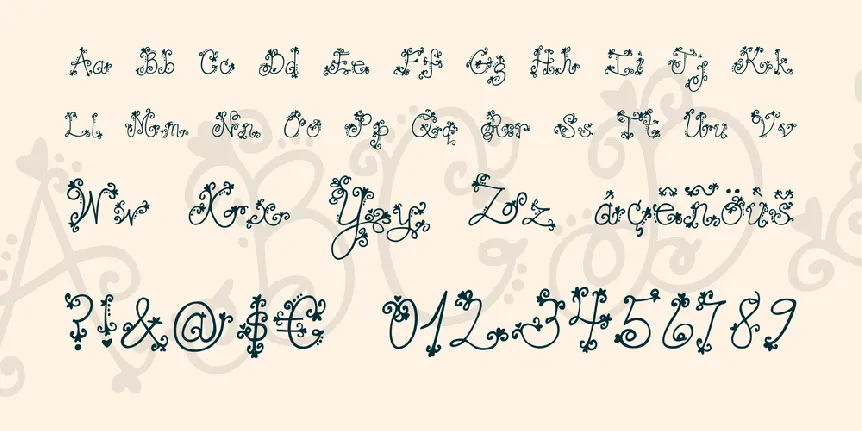 Aa Bb Cc Dd Ee Ff Gg Hh Ii Jj Kk
Ll Mm Nn Oo Pp Qq Rr Ss Tt Uu Vv
Ww Xx Yy Zz áçëñöüš
?!&@$€ 0123456789
ABCD